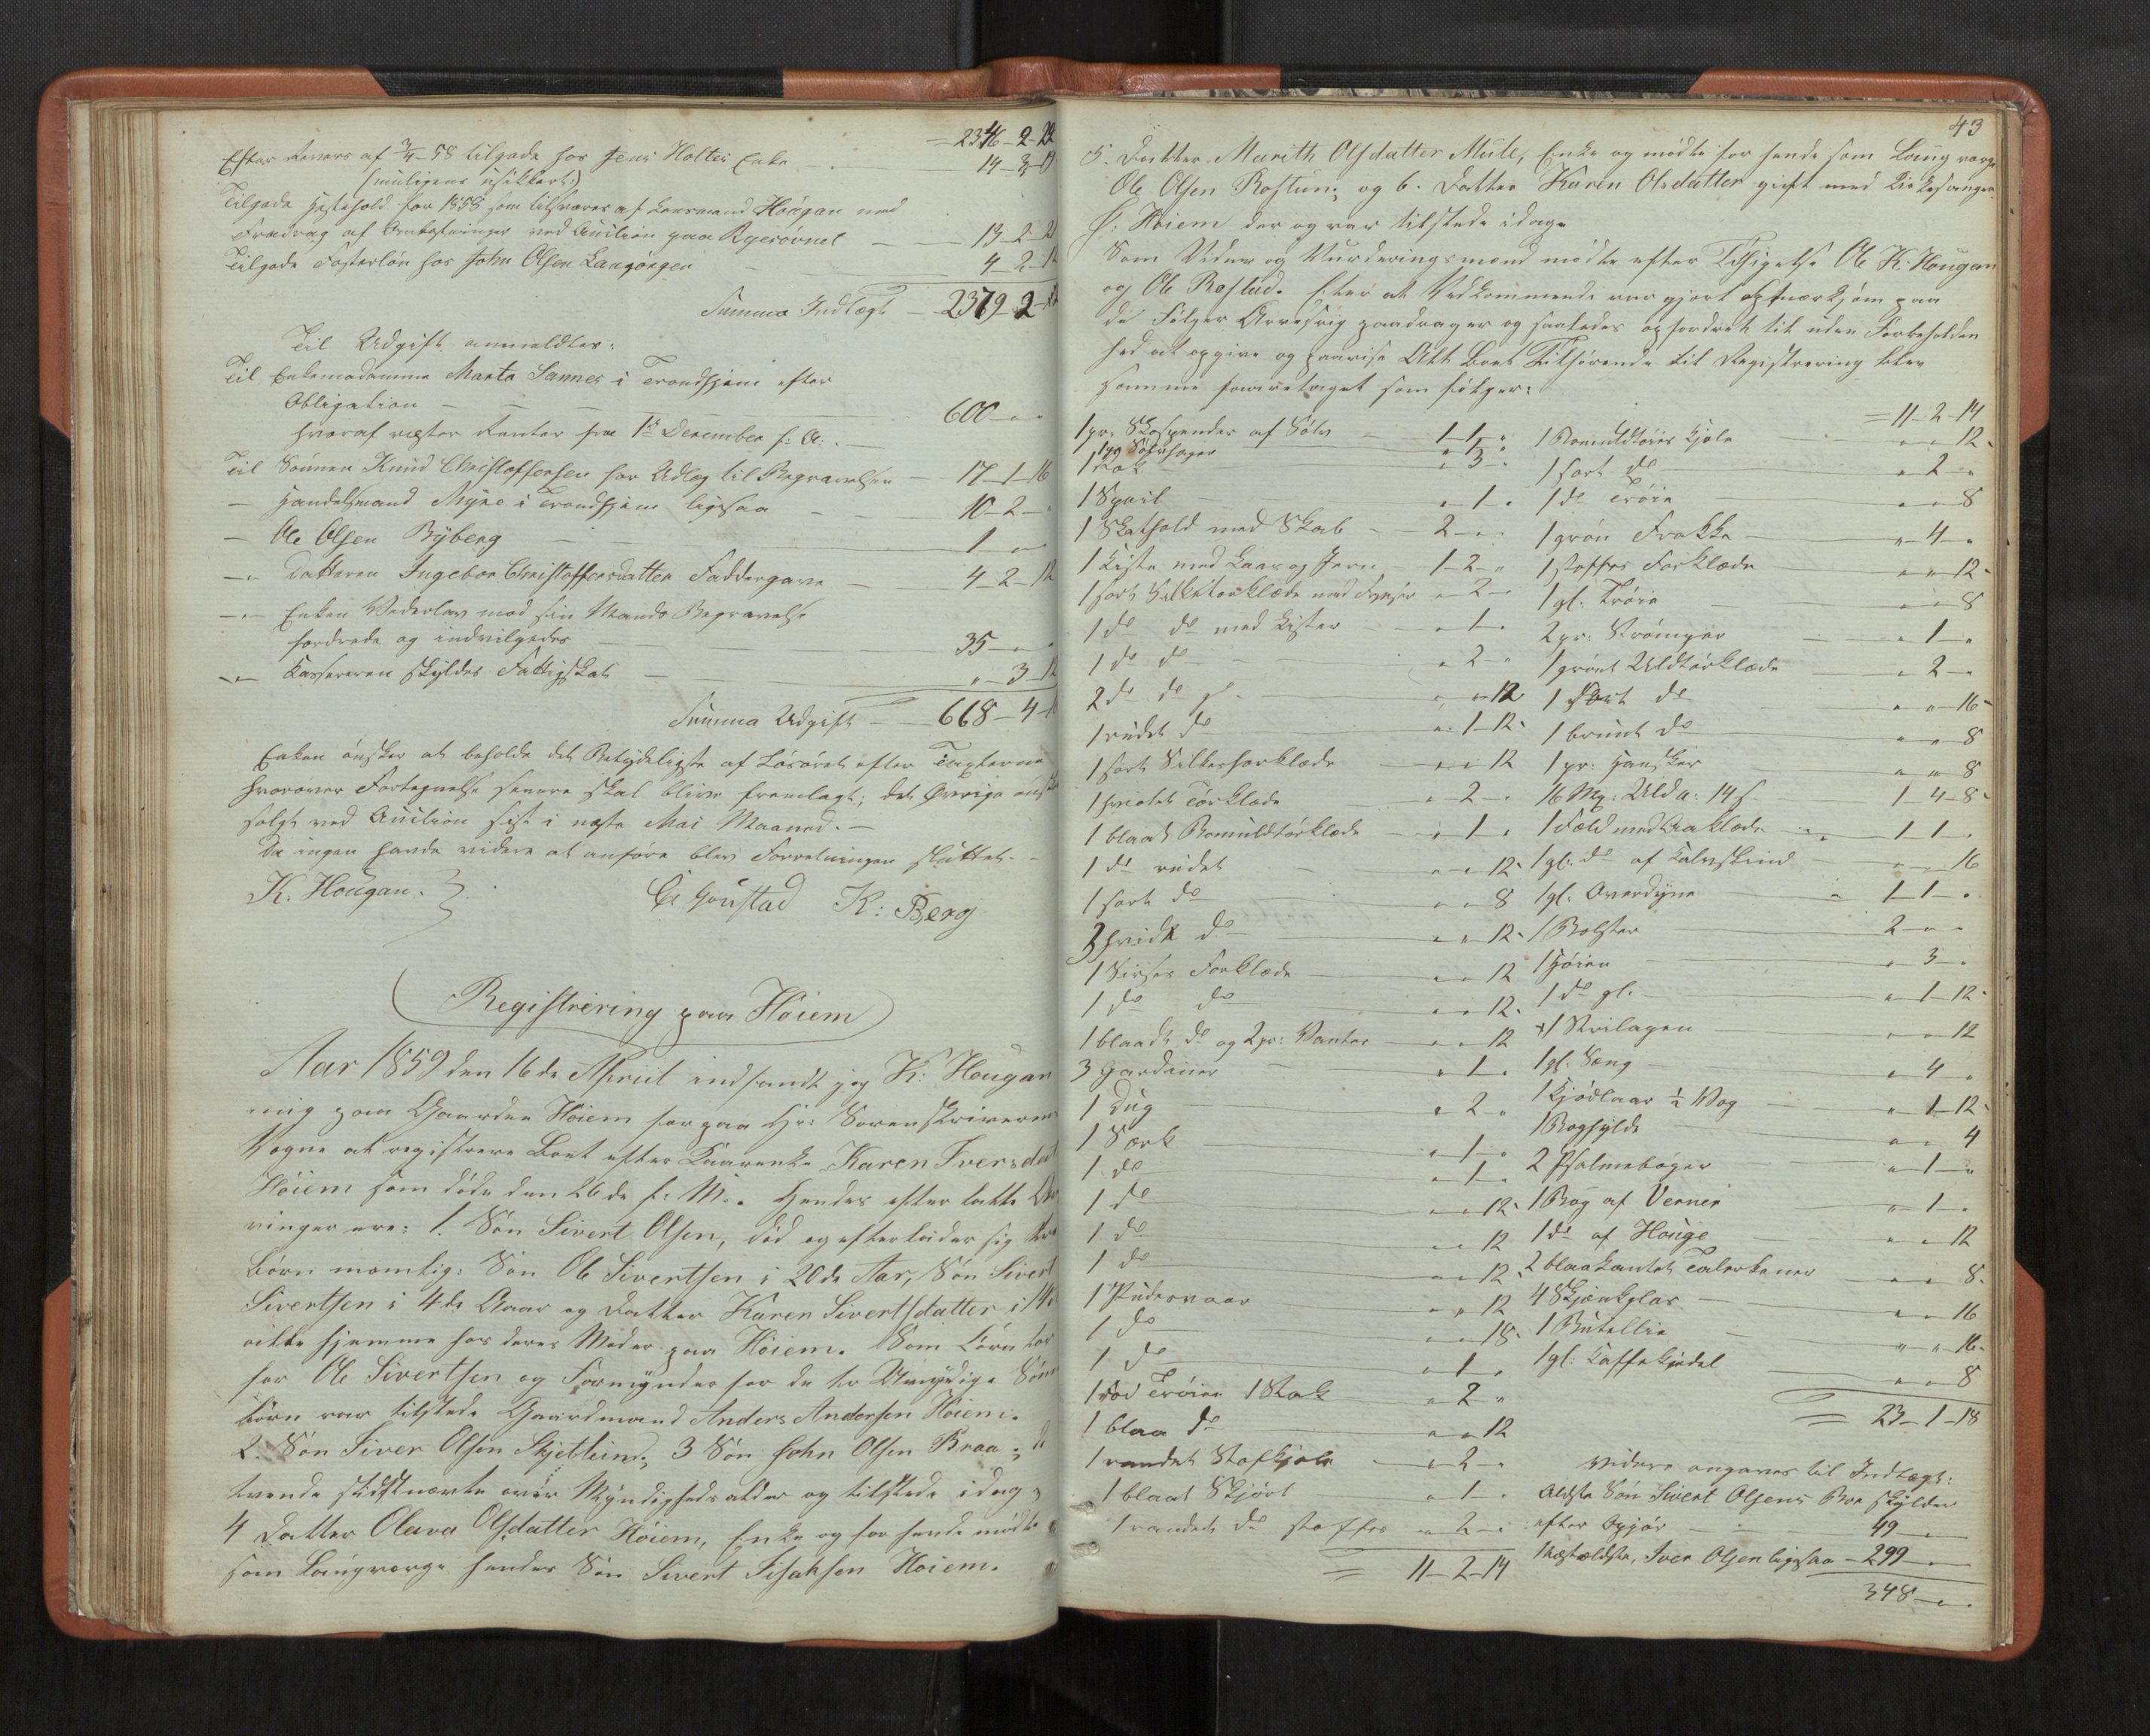 = 2346-2-22
Efter Revers af 3/4-58 tilgode hos Jens Holtes Enke
14-3-19
(muligens usikkert)
Tilgode Hestehold for 1858 som tilsvares af Lensmand Hougan med
Fradrag af Omkostninger ved Auction paa Ryerøvnet - 13-2-2
Tilgode Fosterløn hos John Olsen Langørgen - 4-2-12
Summa Indtægt - 2379-2-
Til Udgift anmeldtes:
Til Enkemadamme Marta Sannes i Trondhjem efter
Obligation - 600 - "
hvoraf regter Renter fra 1ste December f: A:.
Til Sønnen Knud Christoffersen for Udlæg til Begravelsen - 17-1-16
- Handelsmand Myhe i Trondhjem ligesaa - 10-2-
- Ole Olsen Byberg - 1 - "
-"- Datteren Ingebor Christoffersdatter Faddergave - 4-2-12
-"- Enken Vederlav mod sin Mands Begravelse
fordrede og indvilgedes - 35 - "
-"- Kassereren skyldes Fattigskat - " - 3-12
Summa Udgift - 668-4-
Enken ønsker at beholde det Betydeligste af Løsøret efter Taxterne
hvorover Fortegnelse senere skal blive fremlagt; det Øvrige ønskes
solgt ved Auction sidst i neste Mai Maaned. -
Da ingen havde videre at anføre blev Forretningen sluttet. -
K. Hougan. Ole Goustad K: Berg
Registrering paa Høiem
Aar 1859 den 16de April indfandt jeg K: Hougan
mig paa Gaarden Høiem for paa Hr: Sorenskriverens
Vegne at registrere Boet efter Kaarenke Karen Iversdatter
Høiem som døde den 26de f. M.. Hendes efterlatte Ar-
vinger ere: 1. Søn Sivert Olsen, død og efterlader sig tre
Børn nemlig: Søn Ole Sivertsen i 20de Aar, Søn Sivert
Sivertsen i 4de Aar og Datter Karen Sivertsdatter i
alle hjemme hos deres Moder paa Høiem. Som Kurator
for Ole Sivertsen og Formynder for de to Umyndige Sønne
børn var tilstede Gaardmand Anders Andersen Høiem.
2. Søn Iver Olsen Skjetlein, 3 Søn John Olsen Braa;
tvende sidstnævnte over Myndigheds alder og tilstede idag;
4 Datter Olava Olsdatter Høiem, Enke og for hende mødte
som Laugværge hendes Søn Sivert Isaksen Høiem.
43
5. Datter Marith Olsdatter Mule, Enke og mødte for hende som Laugværge
Ole Olsen Rostun; og 6. Datter Karen Olsdatter gift med Kirkesanger
Høiem der og var tilstede idage
Som Vidner og Vurderingsmænd mødte efter Tilsigelse Ole K. Hougan
og Ole Rostad. Efter at Vedkommende var gjort opmærksom paa
de Følger Arvesvig paadrager og saaledes opfordret til uden Forbeholden
hed at opgive og paavise Alt Boet Tilhørende til Registrering blev
Samme foretaget som følger:
1 pr. Skospender af Sølv - 1-1-"
1 pr Sølvhager - " 1 "
1 Rok - " 3 "
1 Speil - " 1 "
1 Skathold med Skab - 2-"-"
1 Kiste med Laas og Jern - 1-2-"
1 sort Silketørklæde med Frynser - " 2 "
1 do do med Lister - " 1 "
1 do do - " 2 "
2 do do gl. - " " 12
1 rudet do - " 1-12
1 sort Silkesforklæde - " " 12
1 hvidt Tørklæde - " 2 "
1 blaat Bomuldtørklæde - " 1 "
1 do rudet - " " 12
1 sort do - " " 8
3 hvidt do - " " 12
1 Sirses Forklæde - " " 12
1 do do - " " 12
1 blaadt do og 2 pr: Vanter - " " 12
3 Gardiner - " 1 "
1 Dug - " 2 "
1 Særk - " 1 "
1 do - " 1 "
1 do - " " 12
1 do - " " 12
1 do - " " 12
1 Pudevaar - " " 12
1 do - " " 18
1 do - " 1 "
1 rød Trøie 1 Stak - " 2 "
1 blaa do - " " 12
1 randet Stofkjole - " 2 "
1 blaat Skjørt - " 1 "
1 randet do stoffes - " 2 "
= 11-2-14
= 11-2-14
1 Bomuldtøies Kjole - " " 12
1 sort do - " 2 "
1 do Trøie - " " 8
1 grøn Frakke - " 4 "
1 stoffes Forklæde - " " 12
1 gl. Trøie - " " 8
2 pr: Strømper - " 1 "
1 grønt Uldtørklæde - " 2 "
1 sort do - " " 16
1 brunt do - " " 8
1 pr: Handsker - " " 8
16 Mk: Uld a: 14 s - 1-4-8
1 Fæld med Aaklæde - 1 1 "
1 gl. do af Kalvskind - " " 16
1 gl. Overdyne - 1-1-"
1 Bolster - 2 " "
1 Høien - " 3 "
1 do gl. - " 1-12
1 Strilagen - " " 12
1 gl. Seng - " 4 "
1 Kjødlaar 1/2 Vog - " 1-12
1 Boghylde - " " 4
2 Psalmebøger - " 1 "
1 Bog af Vernier - " 1 "
1 do af Houge - " " 12
2 blaakantet Talerkener - " " 8
4 Skjænkglas - " " 16
1 Butellie - " " 16
1 gl: Kaffekjedel - " " 8
= 23-1-18
Videre angaves til Indtægt:
Ældste Søn Sivert Olsens Boe skylder
efter Opgjør - 49 - "
Næstældste, Iver Olsen ligesaa - 299 - "
348 - " "